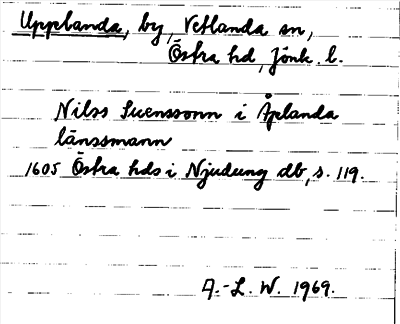 Upplanda, by, Vetlanda sn,
Östra hd, Jönk. l.
Nilss Suenssonn i Åplanda
länssmann
1605 Östra hds i Njudung db, s. 119.
A.-L. W. 1969.